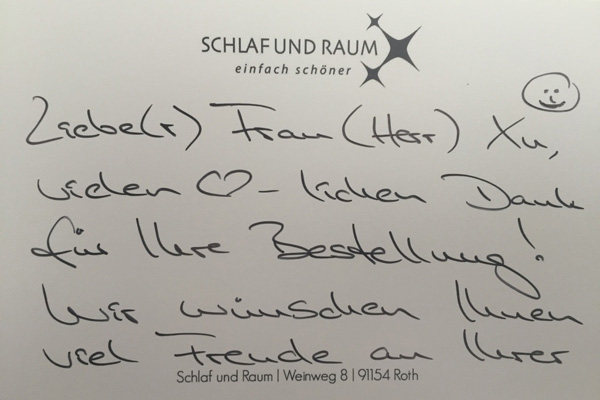 SCHLAF UND RAUM
einfach schöner
Liebe(r) Frau (Herr) Xu,
vielen ♡-lichen Dank
für Ihre Bestellung!
Wir wünschen Ihnen
viel Freude an Ihrer
Schlaf und Raum | Weinweg 8 | 91154 Roth